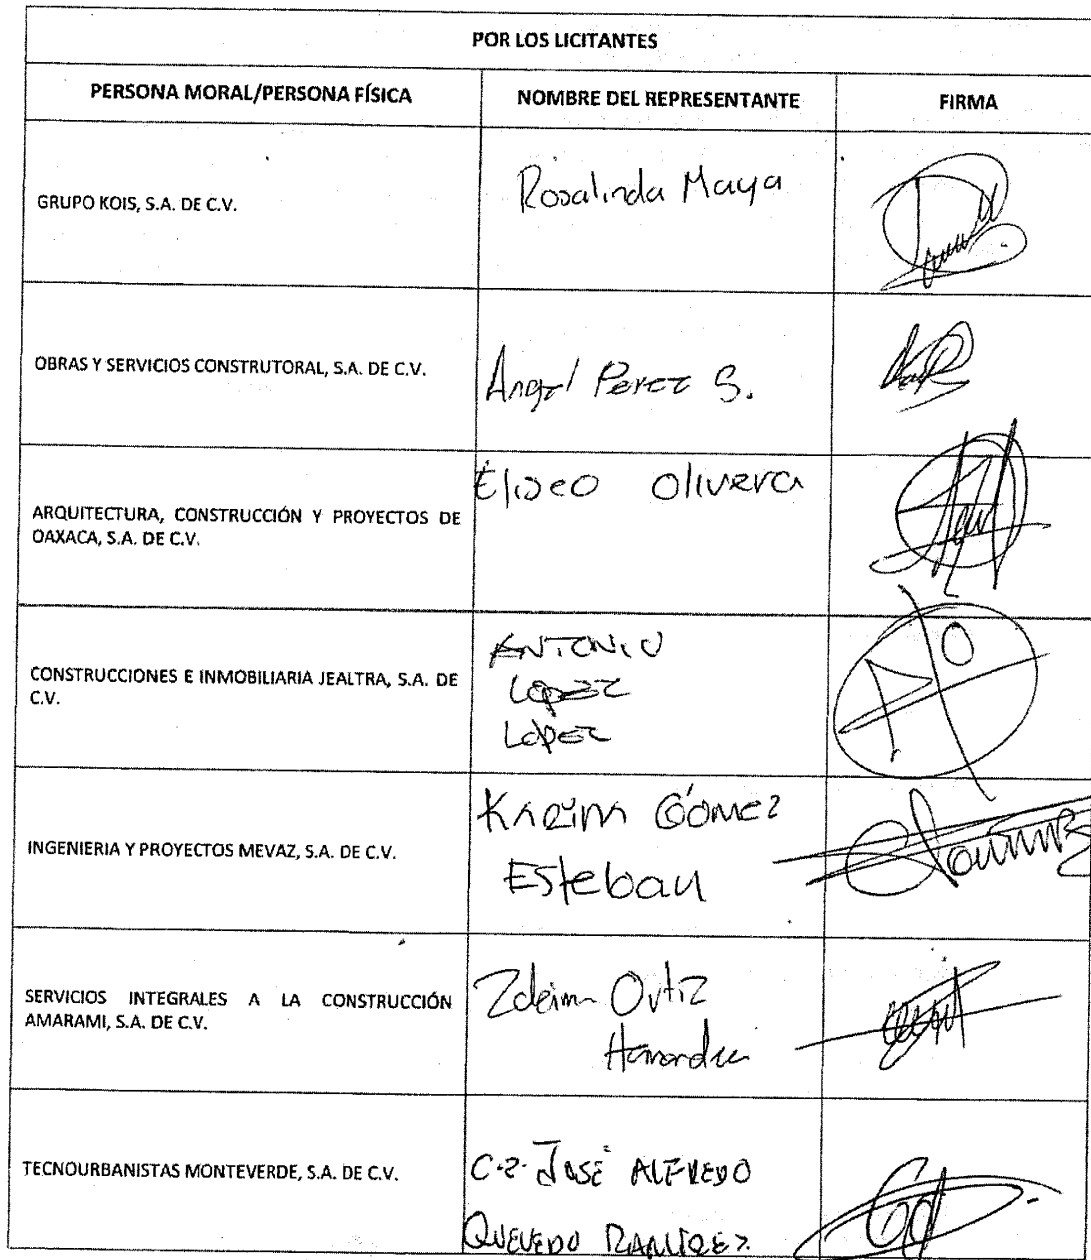 POR LOS LICITANTES
PERSONA MORAL/PERSONA FÍSICA NOMBRE DEL REPRESENTANTE FIRMA
GRUPO KOIS, S.A. DE C.V. Rosalinda Maya
OBRAS Y SERVICIOS CONSTRUTORAL, S.A. DE C.V. Angel Perez S.
ARQUITECTURA, CONSTRUCCIÓN Y PROYECTOS DE
OAXACA, S.A. DE C.V.
Eliseo Olivera
CONSTRUCCIONES E INMOBILIARIA JEALTRA, S.A. DE
C.V.
ANTONIO
López
López
INGENIERIA Y PROYECTOS MEVAZ, S.A. DE C.V.
Karim Gómez
Esteban
SERVICIOS INTEGRALES A LA CONSTRUCCIÓN
AMARAMI, S.A. DE C.V.
Ortiz
TECNOURBANISTAS MONTEVERDE, S.A. DE C.V.
JOSÉ ALFREDO
QUEVEDO RAMIREZ